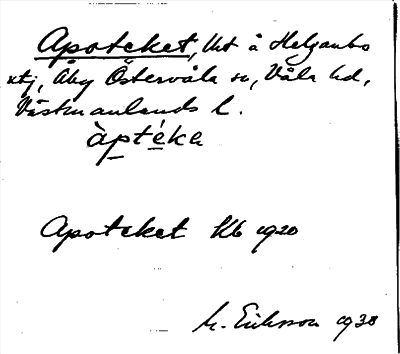 Apoteket, Urt å Helganbo
utj, Åby Östervåla sn, Våla hd,
Västmanlands l.
àptéka
Apoteket Kb 1920
M. Eriksson 1938